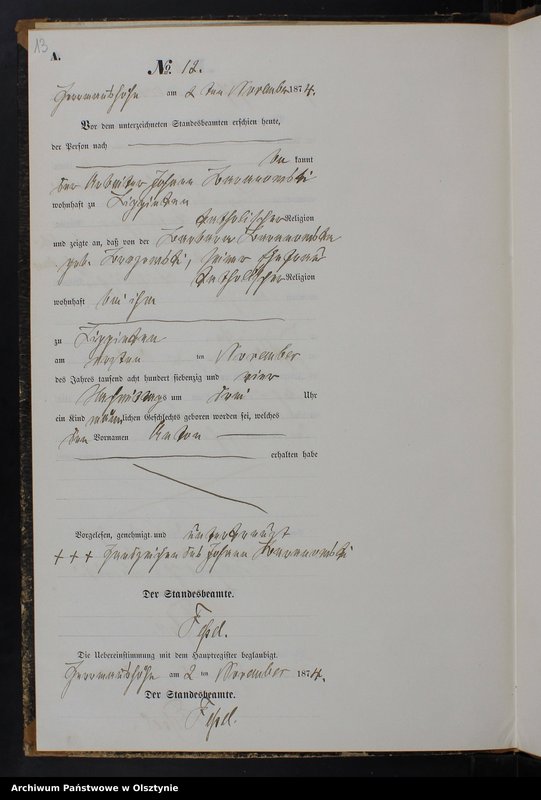 13
A.
No. 12.
Herrmannshöhe am 2 ten November 1874.
Vor dem unterzeichneten Standesbeamten erschien heute,
der Person nach
be kannt
der Arbeiter Johann Baranowski
wohnhaft zu Lippinken
katholischer Religion
und zeigte an, daß von der Barbara Baranowska
geb. , seiner Ehefrau
katholischer Religion
wohnhaft bei ihm
zu Lippinken
am ersten ten November
des Jahres tausend acht hundert siebenzig und vier
Nachmittags um drei Uhr
ein Kind männlichen Geschlechts geboren worden sei, welches
den Vornamen Anton
erhalten habe
Vorgelesen, genehmigt und unterkreuzt
+ + + Handzeichen des Johann Baranowski
Der Standesbeamte.
Die Uebereinstimmung mit dem Hauptregister beglaubigt.
Herrmannshöhe am 2 ten November 1874.
Der Standesbeamte.
Archiwum Państwowe w Olsztynie